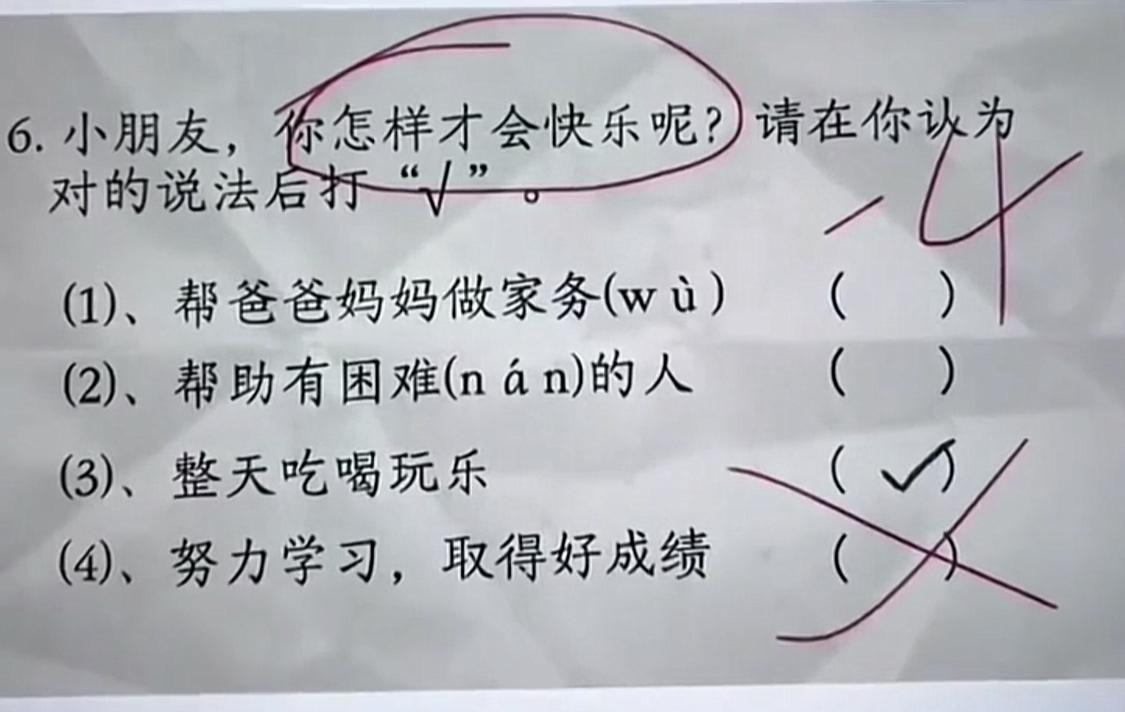 6. 小朋友，你怎样才会快乐呢？请在你认为
对的说法后打“√”。
-4
(1)、帮爸爸妈妈做家务(wù) (   )
(2)、帮助有困难(nán)的人 (   )
(3)、整天吃喝玩乐 ( ✓ )
(4)、努力学习，取得好成绩 (   )